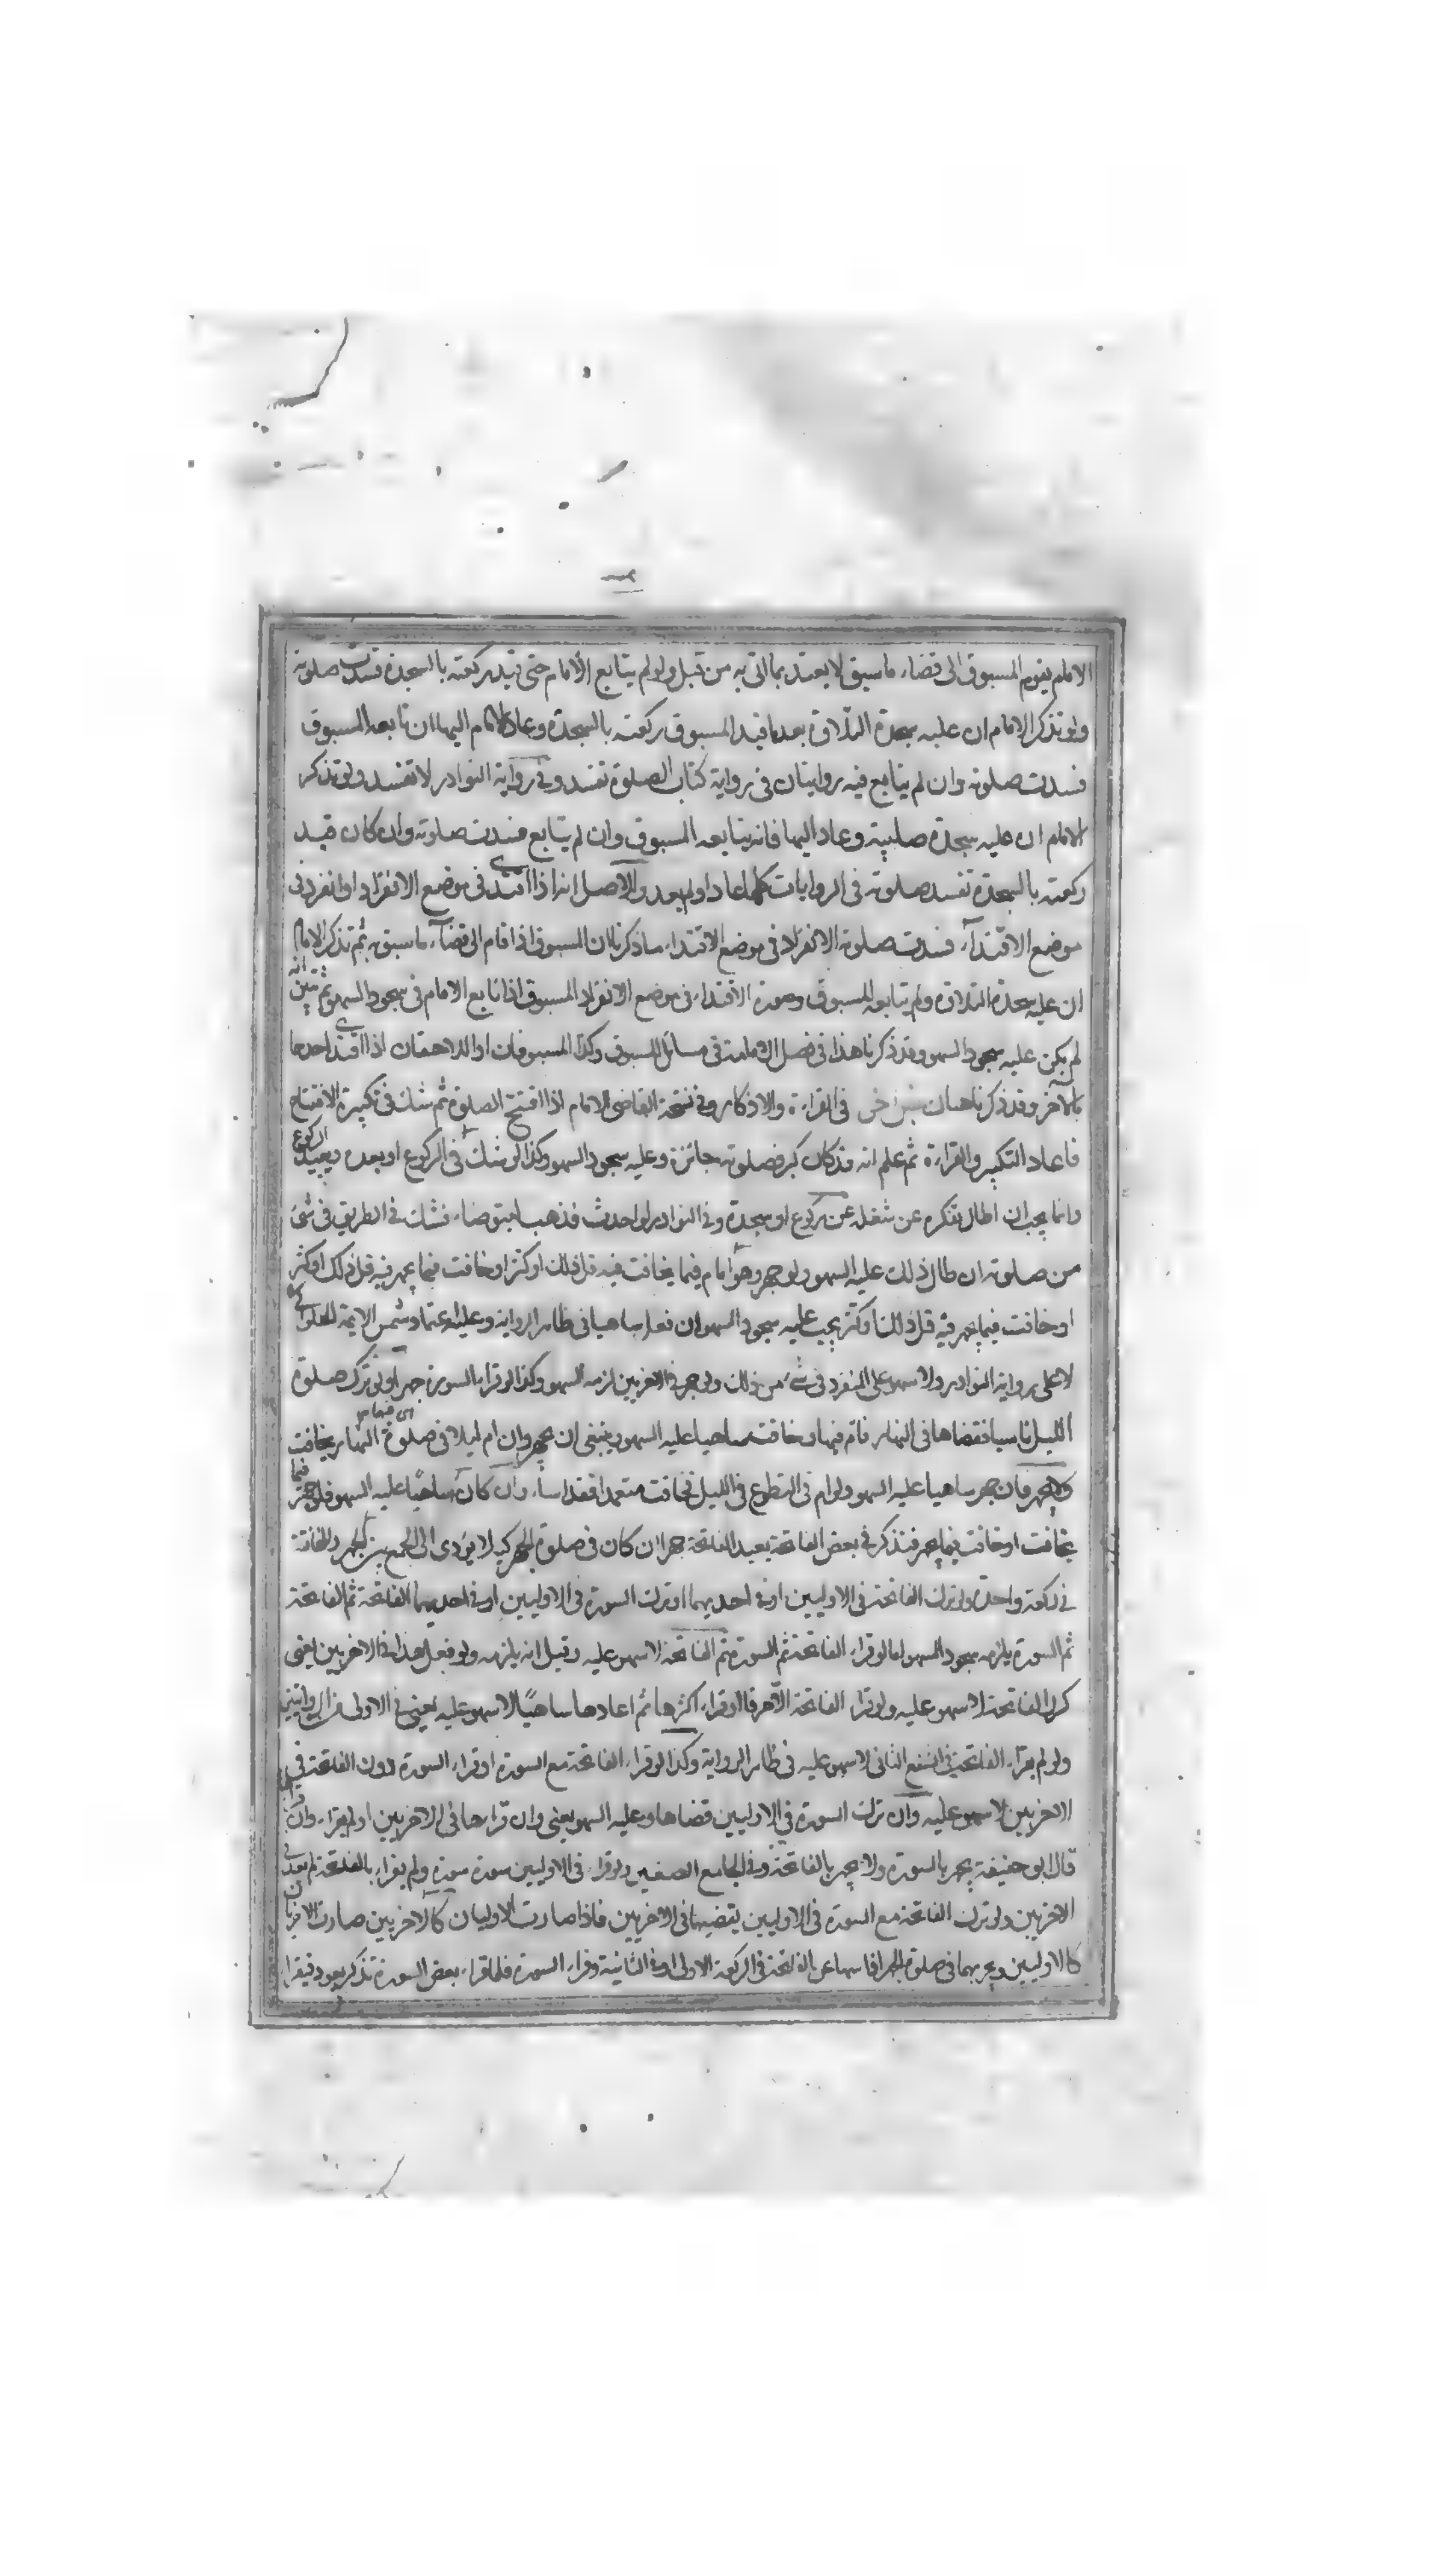 الامام يقوم المسبوق الى قضاء ما سبق لا يعتد بما اتى به من قبل ولو لم يتابع الامام حتى قيد ركعته بالسجدة فسدت صلوته
ولو تذكر الامام ان عليه سجدة التلاوة بعدما قيد المسبوق ركعته بالسجدة وعاد الامام اليها ان تابعه المسبوق
فسدت صلوته وان لم يتابع فيه روايتان في رواية كتاب الصلوة تفسد وفي رواية النوادر لا تفسد ولو تذكر
الامام ان عليه سجدة صلبية وعاد اليها فانه يتابعه المسبوق وان لم يتابع فسدت صلوته وان كان قيد
ركعته بالسجدة تفسد صلوته في الروايات كلها عاد اولم يعد والاصل انه اذا اقتدى في موضع الانفراد او انفرد في
موضع الاقتداء فسدت صلوته الانفراد في موضع الاقتداء ما ذكرنا ان المسبوق اذا قام الى قضاء ما سبق به ثم تذكر الامام
ان عليه سجدة التلاوة ولم يتابعه المسبوق وصورة الاقتداء في موضع الانفراد المسبوق اذا تابع الامام في سجود السهو ثم تبين انه
لم يكن عليه سجود السهو وقد ذكرنا هذا في فصل الامامة في مسائل المسبوق وكذا المسبوقان او اللاحقان اذا اقتدى احدهما
بالاخر وقد ذكرناه في القراءة والاذكار وفي نسخة القاضي الامام اذا افتتح الصلوة ثم شك في تكبيرة الافتتاح
فاعاد التكبير والقراءة ثم علم انه قد كان كبر فصلوته جائزة وعليه سجود السهو وكذا لو شك في الركوع او بعده ويعيد الركوع
وانما يجب ان اطال تفكره عن شغله عن ركوع او سجدة وفي النوادر لو احدث فذهب ليتوضاء فشك في الطريق في شئ
من صلوته ان طال ذلك عليه السهو ولو جهر وهو امام فيما يخافت فيه قل ذلك او كثر او خافت فيما يجهر فيه قل ذلك او كثر
او خافت فيما يجهر فيه قل ذلك او كثر يجب عليه سجود السهو ان فعل ساهيا في ظاهر الرواية وعليه اعتماد شمس الايمة الحلواني
لا على رواية النوادر ولا سهو على المنفرد في شئ من ذلك ولو جهر في الاخريين لزمه السهو وكذا لو قراء السورة جهرا ولو ترك صلوة
الليل ناسيا فقضاها في النهار فام فيها وخافت ساهيا عليه السهو وينبغي ان يجهر وان ام ليلا في صلوة النهار يخافت
ولا يجهر فان جهر ساهيا عليه السهو ولو ام في التطوع في الليل فخافت متعمدا فقد اساء وان كان ساهيا عليه السهو فلو جهر فيما
يخافت او خافت فيما يجهر فتذكر في بعض الفاتحة يعيد الفاتحة جهرا ان كان في صلوة الجهر كيلا يؤدى الى الجمع بين الجهر والمخافتة
في ركعة واحدة ولو ترك الفاتحة في الاوليين او في احديهما او ترك السورة في الاوليين او في احديهما الفاتحة ثم الفاتحة
ثم السورة يلزمه سجود السهو اما لو قراء الفاتحة ثم السورة ثم الفاتحة لا سهو عليه وقيل انه يلزمه ولو فعل هذا في الاخريين يعني
كرر الفاتحة لا سهو عليه ولو قراء الفاتحة الا حرفا او قراء اكثرها ثم اعادها ساهيا لا سهو عليه يعني في الاولى
ولو لم يقراء الفاتحة في الشفع الثاني لا سهو عليه في ظاهر الرواية وكذا لو قراء الفاتحة مع السورة او قراء السورة دون الفاتحة في
الاخريين لا سهو عليه وان ترك السورة في الاوليين قضاها وعليه السهو يعني وان قراها في الاخريين اولم يقراء وان
قال ابو حنيفة يجهر بالسورة ولا يجهر بالفاتحة وفي الجامع الصغير ولو قراء في الاوليين سورة سورة ولم يقراء بالفاتحة لم يعد في
الاخريين ولو ترك الفاتحة مع السورة في الاوليين يقضيهما في الاخريين فاذا صارت الاوليان كالاخريين صارت الاخريان
كالاوليين ويجهر بهما في صلوة الجهر اذا سها عن الفاتحة في الركعة الاولى او في الثانية وقراء السورة فلما قراء بعض السورة تذكر يعود فيقراء